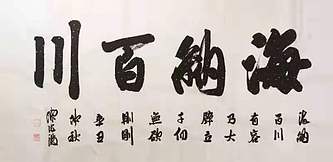 海納百川
海納
百川
有容
乃大
壁立
千仞
無欲
則剛
辛丑
仲秋